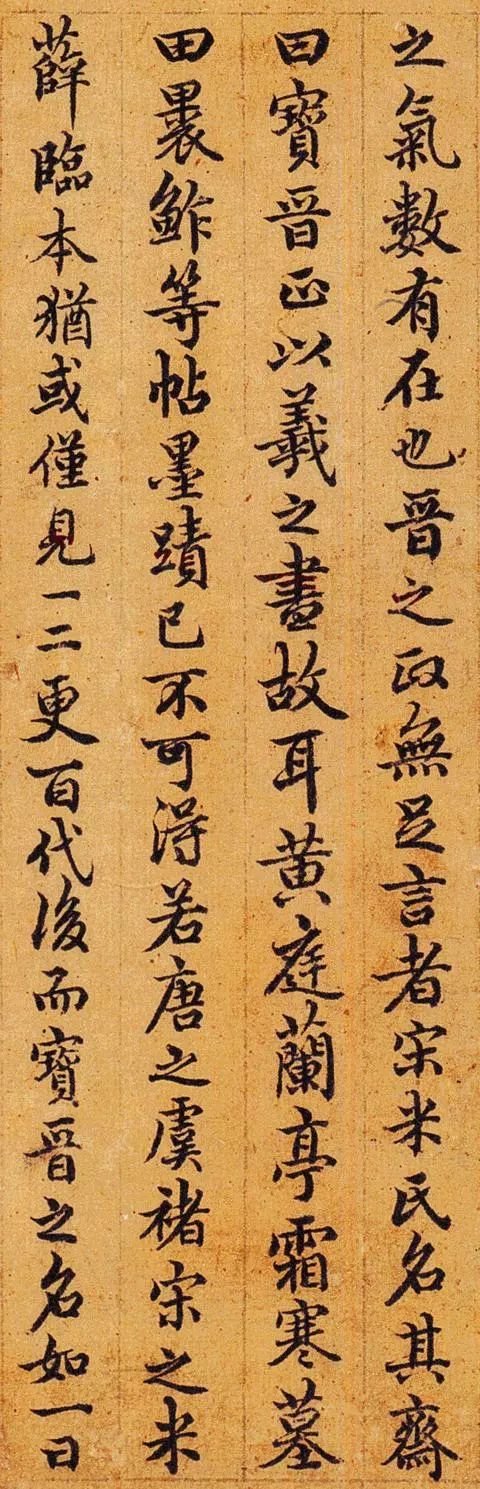 之氣數有在也晉之政無足言者宋米氏名其齋
曰寶晉正以羲之書故耳黄庭蘭亭霜寒墓
田裹鮓等帖墨蹟已不可得若唐之虞褚宋之米
薛臨本猶或僅見一二更百代後而寶晉之名如一日